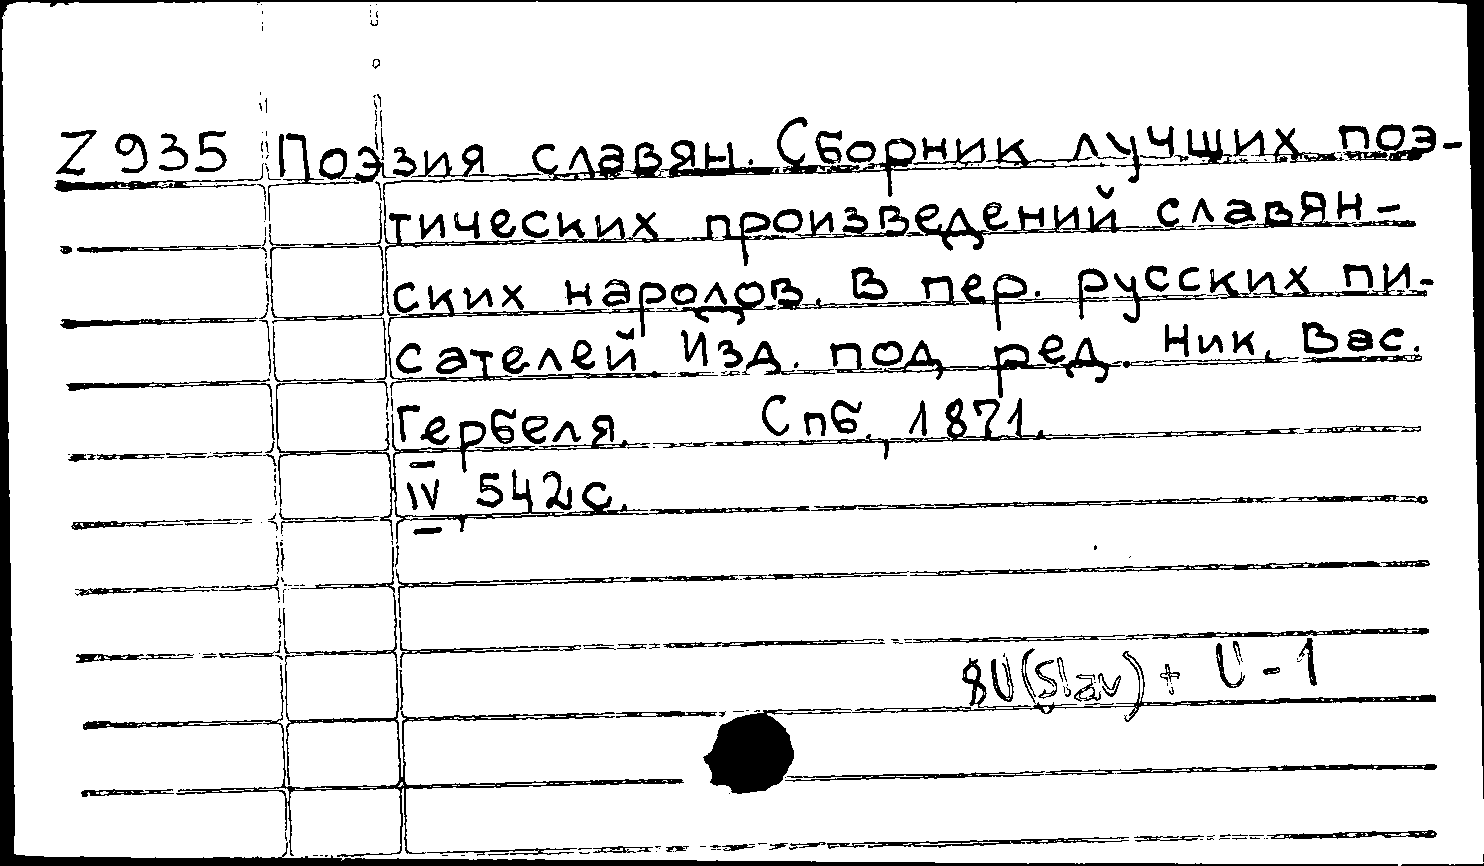 Z 935 Поэзия славян. Сборник лучших поэ-
тических произведений славян-
ских народов. В пер. русских пи-
сателей. Изд. под ред. Ник. Вас.
Гербеля. Спб., 1871.
IV, 542 с.
8U(Slav) + U-1